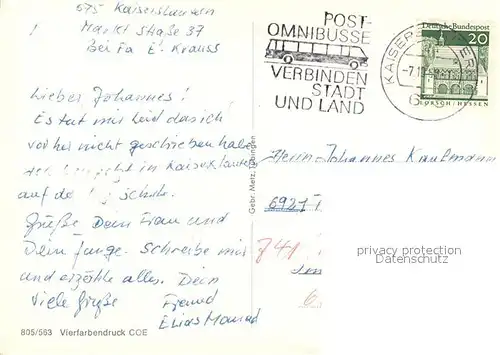 675 Kaiserslautern
Markt Straße 37
Bei Fa E. Krauss
Lieber Johannes!
Es tut mir leid das ich
vorher nicht geschrieben habe
jetzt in Kaiserslautern
auf der Schule.
Grüße Dein Frau und
Dein Junge. Schreibe mir
und erzähle alles. Dein
Viele Grüße Freund
Elias
805/563 Vierfarbendruck COE
Gebr. Metz, Tübingen
POST-
OMNIBUSSE
VERBINDEN
STADT
UND LAND
KAISERS
-7.10
Deutsche Bundespost
20
LORSCH/HESSEN
Herrn Johannes Kaufmann
6927
741
privacy protection
Datenschutz